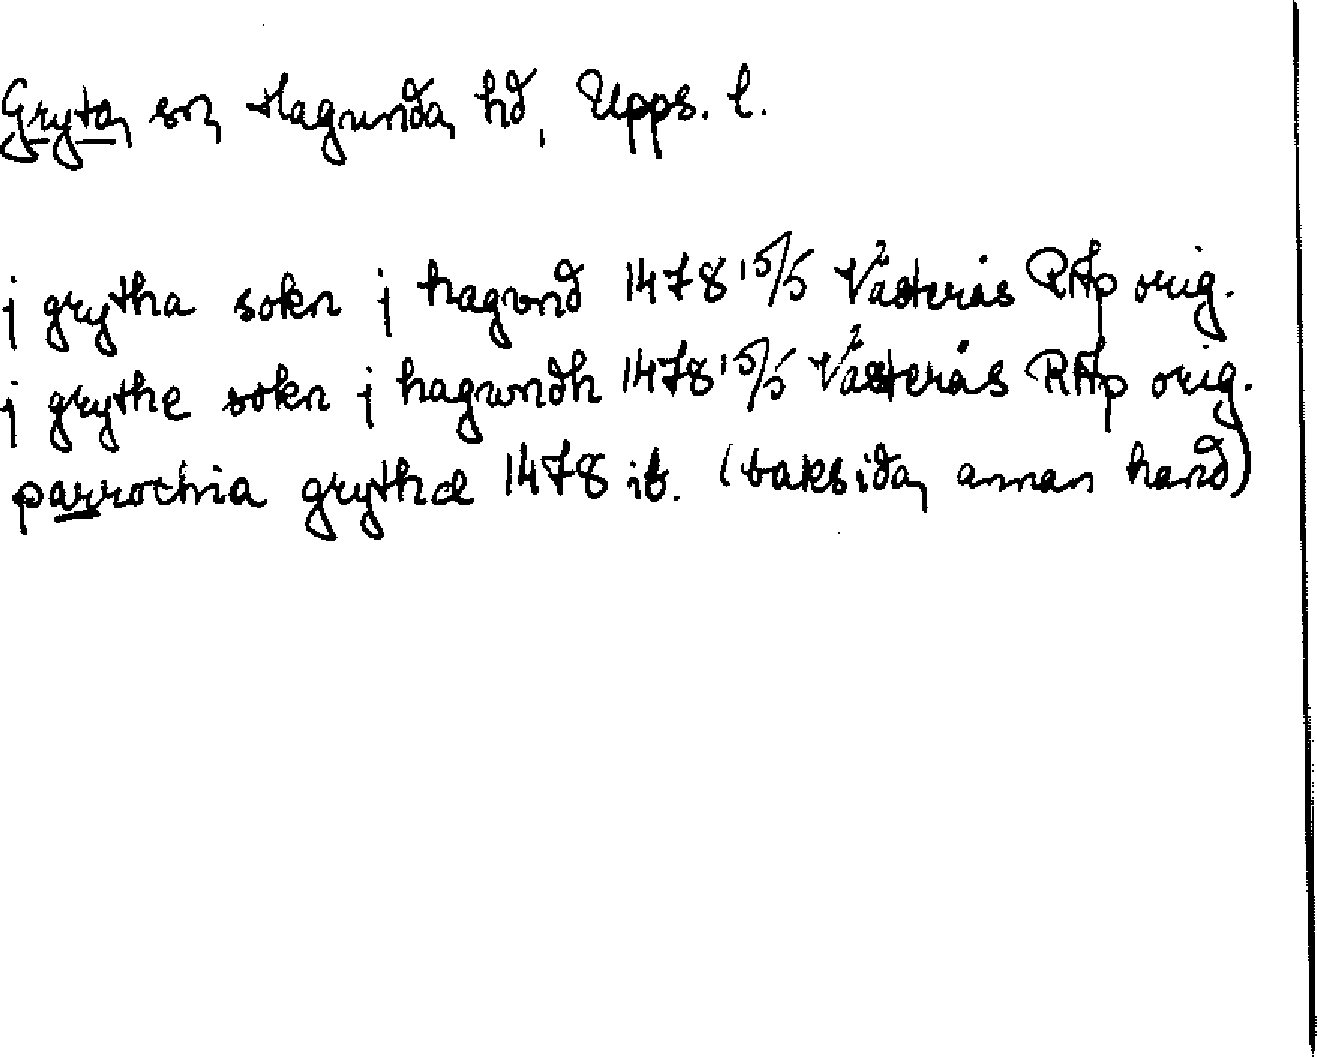 Gryta, sn, Hagunda, hd, Upps. l.
j grytha sokn j hagund 1478 15/5 Västerås RAp orig.
j grythe sokn j hagwndh 1478 15/5 Västerås RAp orig.
parrochia grythæ 1478 ib. (baksida, annan hand)